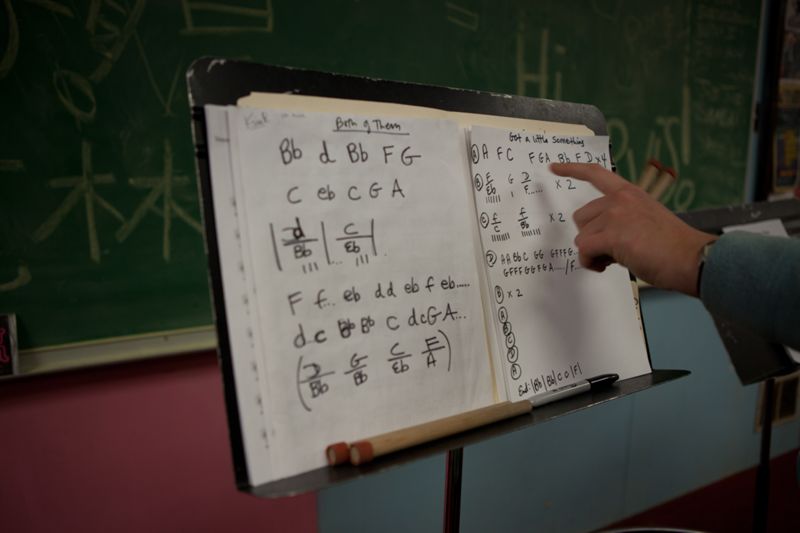 Both of Them
Bb d Bb F G
C eb C G A
| d/Bb | C/Eb |
F f... eb dd eb f eb.....
d c Bb Bb C d c G A...
( D/Bb G/Bb C/Eb F/A )
Got a little Something
Ⓐ A F C F G A Bb F D x4
Ⓑ F/Eb G D/F...... x 2
Ⓒ f/C f/Bb x 2
Ⓓ A A Bb C GG GFFFG...
GFFF GG FG A...../F...
Ⓑ x 2
Ⓐ
Ⓑ
Ⓒ
Ⓓ
Ⓐ
End: |Bb|Bb|C o|F|
Hi
木